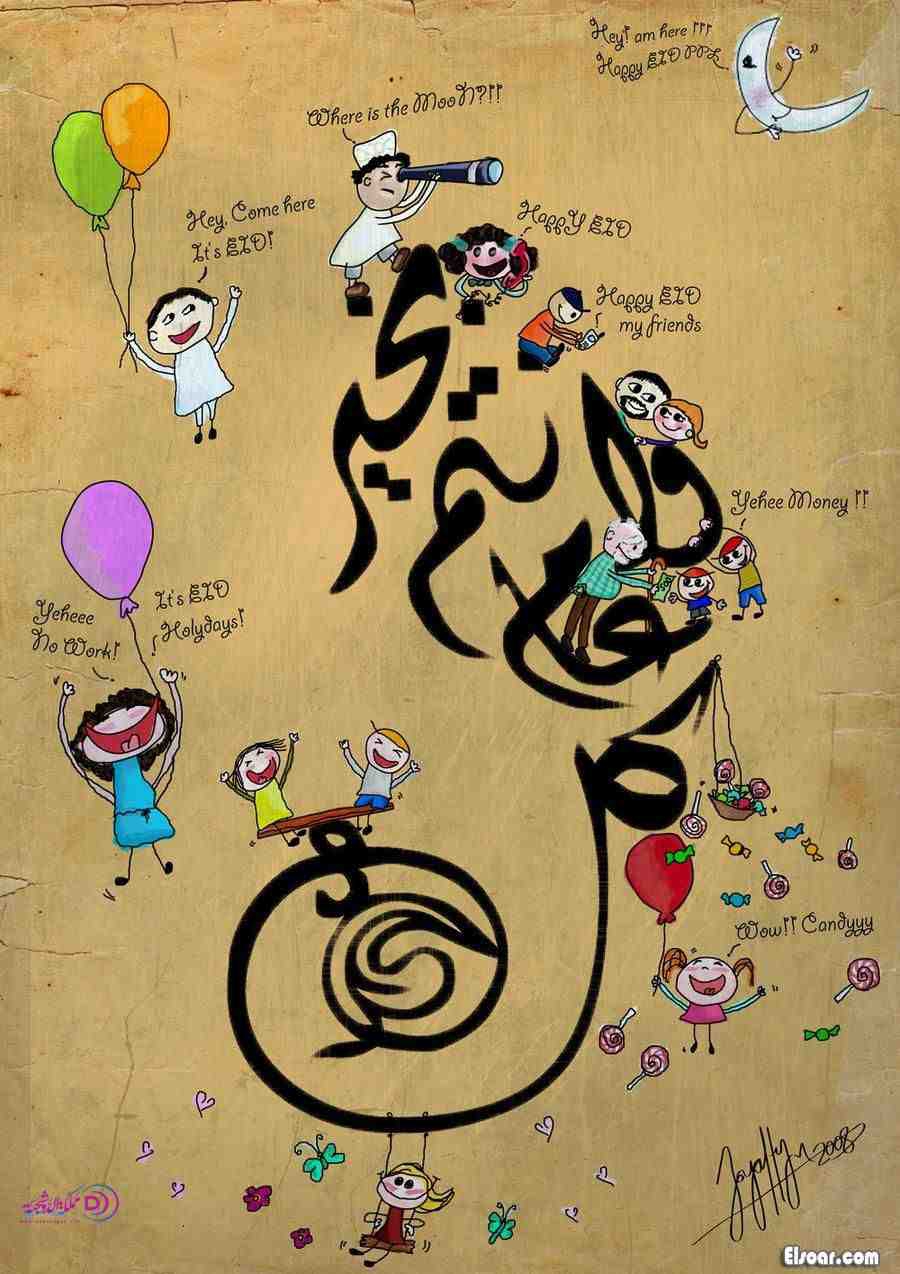 Hey! am here !!!
Happy EID PPL
Where is the MooN?!!
Hey, Come here
It's EID!
HappY EID
Happy EID
my friends
كل عام وانتم بخير
Yehee Money !!
Yeheee
No Work!
It's EID
Holydays!
Wow!! Candyyy
2008
Elsoar.com